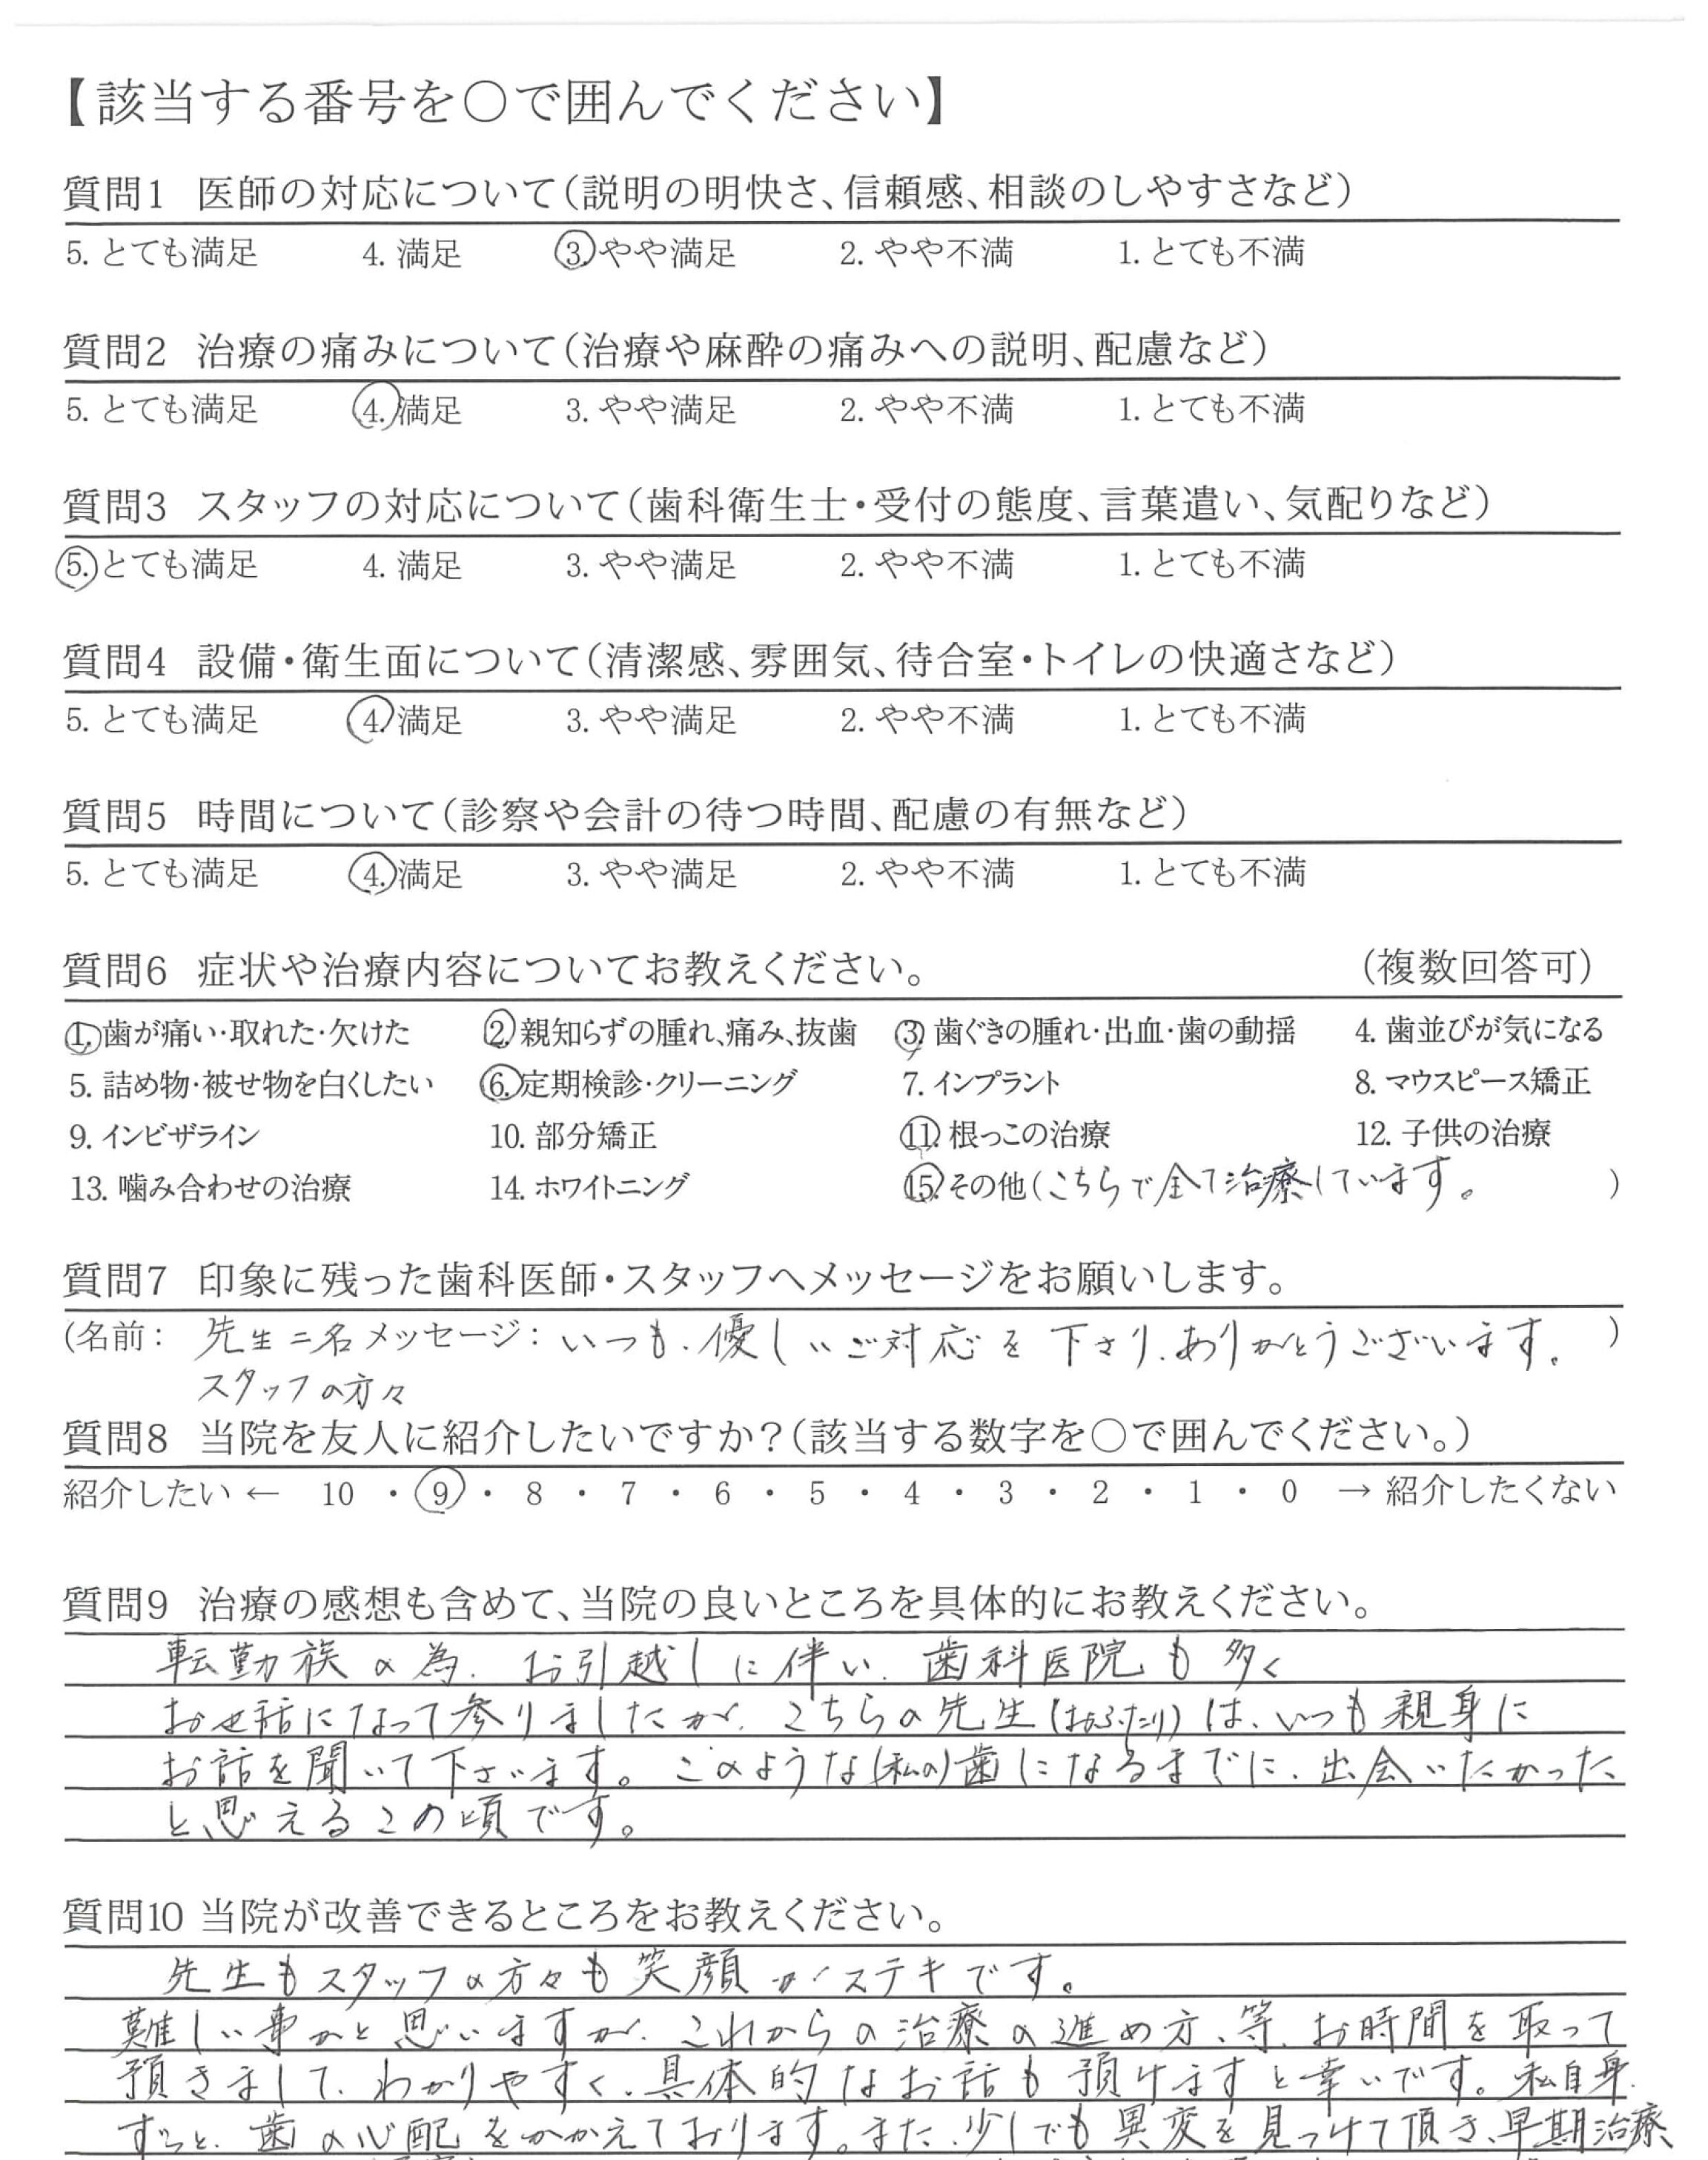 【該当する番号を○で囲んでください】
質問1 医師の対応について（説明の明快さ、信頼感、相談のしやすさなど）
5. とても満足 4. 満足 3. やや満足 2. やや不満 1. とても不満
質問2 治療の痛みについて（治療や麻酔の痛みへの説明、配慮など）
5. とても満足 4. 満足 3. やや満足 2. やや不満 1. とても不満
質問3 スタッフの対応について（歯科衛生士・受付の態度、言葉遣い、気配りなど）
5. とても満足 4. 満足 3. やや満足 2. やや不満 1. とても不満
質問4 設備・衛生面について（清潔感、雰囲気、待合室・トイレの快適さなど）
5. とても満足 4. 満足 3. やや満足 2. やや不満 1. とても不満
質問5 時間について（診察や会計の待つ時間、配慮の有無など）
5. とても満足 4. 満足 3. やや満足 2. やや不満 1. とても不満
質問6 症状や治療内容についてお教えください。 （複数回答可）
1. 歯が痛い・取れた・欠けた 2. 親知らずの腫れ、痛み、抜歯 3. 歯ぐきの腫れ・出血・歯の動揺 4. 歯並びが気になる
5. 詰め物・被せ物を白くしたい 6. 定期検診・クリーニング 7. インプラント 8. マウスピース矯正
9. インビザライン 10. 部分矯正 11. 根っこの治療 12. 子供の治療
13. 噛み合わせの治療 14. ホワイトニング 15. その他（こちらで全て治療しています。 ）
質問7 印象に残った歯科医師・スタッフへメッセージをお願いします。
（名前： 先生二名 メッセージ： いつも、優しいご対応を下さり、ありがとうございます。 ）
スタッフの方々
質問8 当院を友人に紹介したいですか？（該当する数字を○で囲んでください。）
紹介したい ← 10 ・ 9 ・ 8 ・ 7 ・ 6 ・ 5 ・ 4 ・ 3 ・ 2 ・ 1 ・ 0 → 紹介したくない
質問9 治療の感想も含めて、当院の良いところを具体的にお教えください。
転勤族の為、お引越しに伴い、歯科医院も多く
お世話になって参りましたが、こちらの先生（おふたり）は、いつも親身に
お話を聞いて下さいます。このような（私の）歯になるまでに、出会いたかった
と思えるこの頃です。
質問10 当院が改善できるところをお教えください。
先生もスタッフの方々も笑顔がステキです。
難しい事かと思いますが、これからの治療の進め方、等、お時間を取って
預きまして、わかりやすく、具体的なお話も預けますと幸いです。私自身、
ずっと、歯の心配をかかえております。また、少しでも異変を見つけて頂き、早期治療